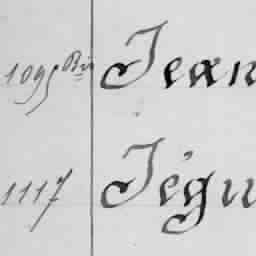 1095 Bis Jean
1117 Jégu